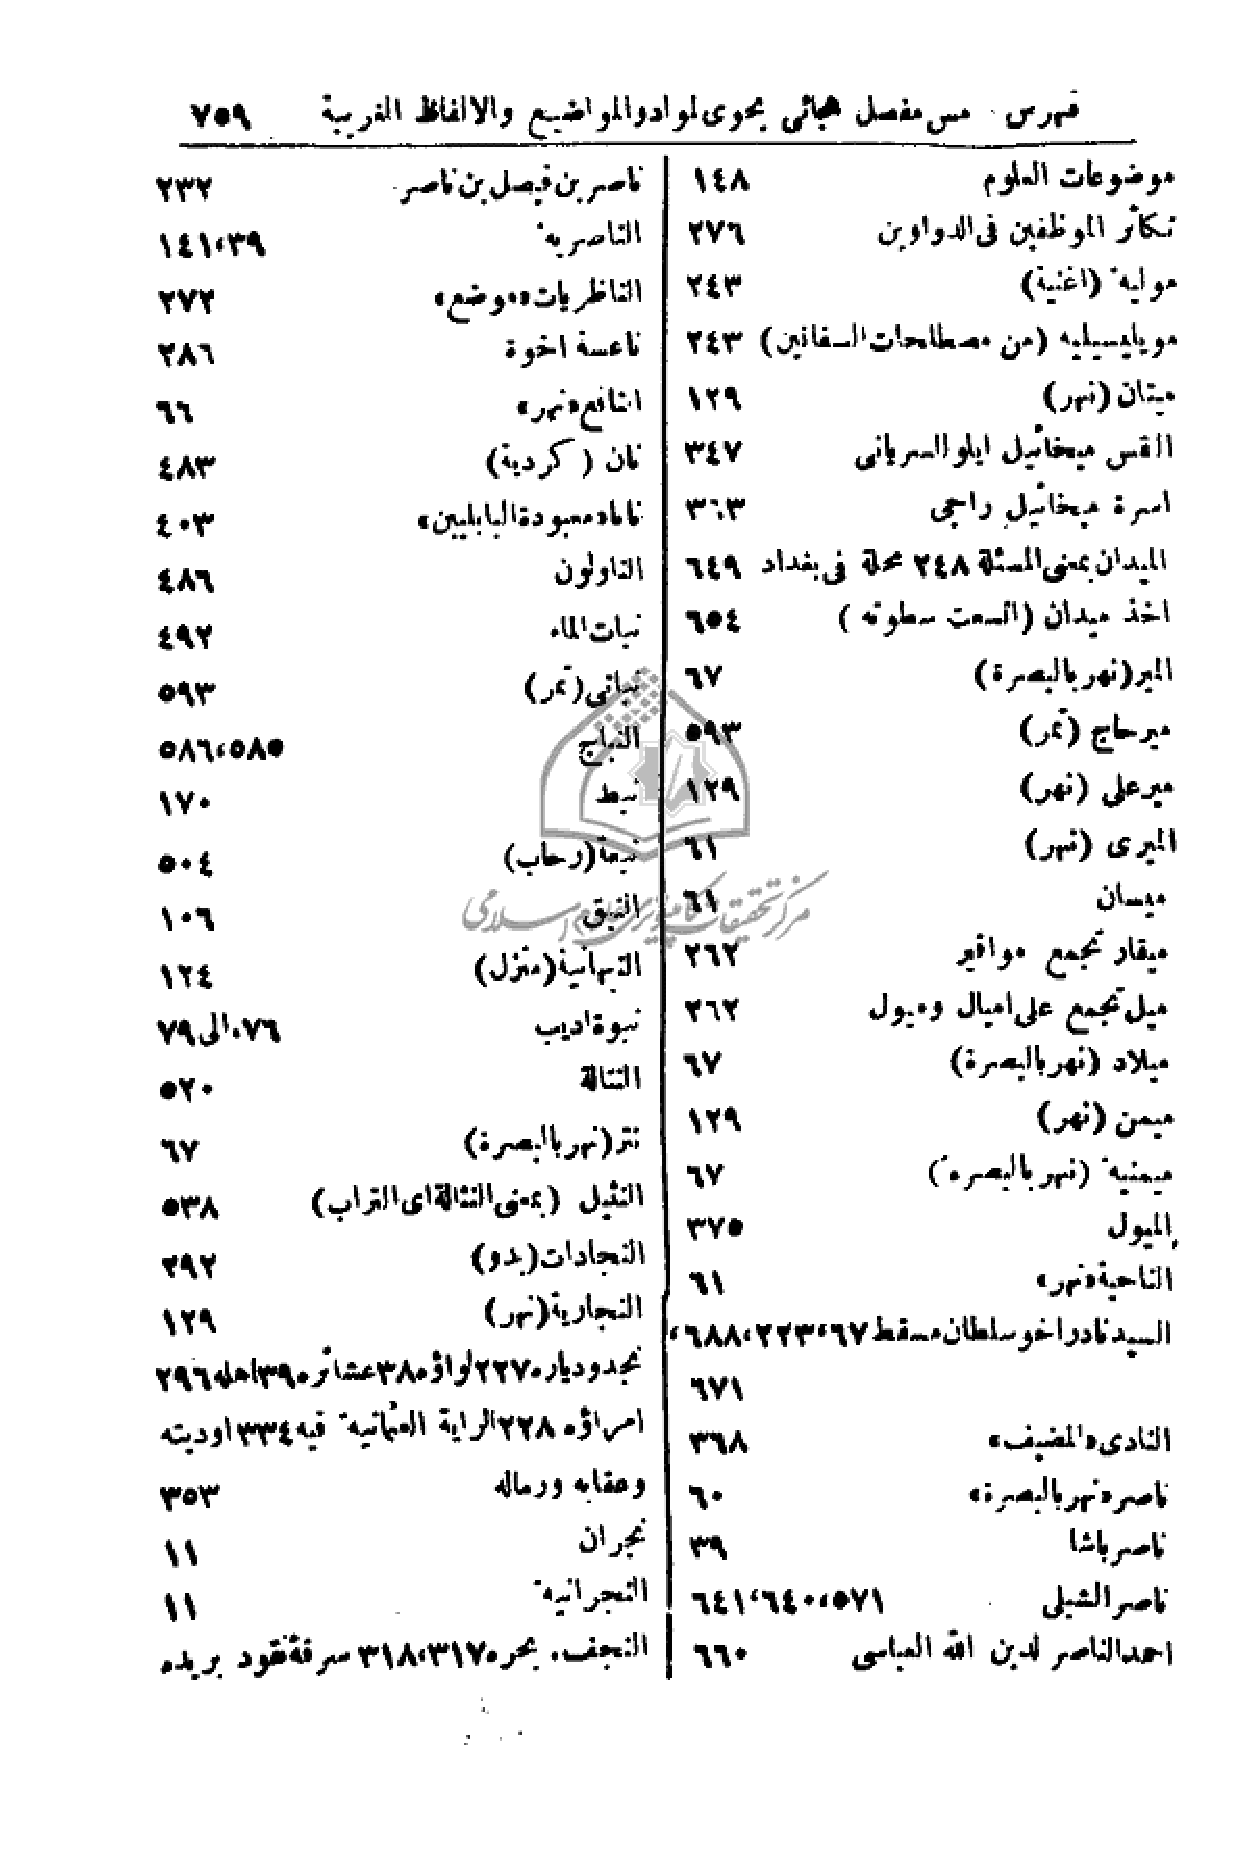 فهرس خامس مفصل هجائي يحوى لمواد والمواضيع والالفاظ الغريبة ٧٥٩
موضوعات العلوم ١٤٨
تكاثر الموظفين فى الدواوين ٢٧٦
مولية (اغنية) ٢٤٣
مويليسيليه (من مصطلحات السفانين) ٢٤٣
ميتان (نهر) ١٢٩
القس ميخائيل ايلو السريانى ٣٤٧
اسرة ميخائيل راجي ٣٦٣
الميدان بمعنى المسئلة ٢٤٨ محلة فى بغداد ٦٤٩
اخذ ميدان (اتسعت سطوته) ٦٥٤
المير (نهر بالبصرة) ٦٧
مير حاج (تمر) ٥٩٣
مير على (نهر) ١٢٩
الميرى (نهر) ٦١
ميسان ٦١
ميقار تجمع مواقير ٢٦٢
ميل تجمع على اميال وميول ٢٦٢
ميلاد (نهر بالبصرة) ٦٧
ميمن (نهر) ١٢٩
ميمنية (نهر بالبصرة) ٦٧
الميول ٣٧٥
الناحية «نهر» ٦١
السيد نادر اخو سلطان مسقط ٦٧، ٢٢٣، ٦٨٨،
٦٧١
النادى «المضيف» ٣٦٨
ناصر «نهر بالبصرة» ٦٠
ناصر باشا ٣٩
ناصر الشبلى ٥٧١، ٦٤٠، ٦٤١
احمد الناصر لدين الله العباسى ٦٦٠
ناصر بن فيصل بن ناصر ٢٣٢
الناصرية ٣٩، ١٤١
الناظريات «موضع» ٢٧٢
ناعسة اخوة ٢٨٦
النافع «نهر» ٦٦
نان (كردية) ٤٨٣
نانا «معبودة البابليين» ٤٠٣
الناولون ٤٨٦
نبات الماء ٤٩٢
نباتى (تمر) ٥٩٣
النباج ٥٨٥، ٥٨٦
نبط ١٧٠
نبعة (رحاب) ٥٠٤
النبق ١٠٦
النبهانية (منزل) ١٢٤
نبوة اديب ٧٦، الى ٧٩
النتالة ٥٢٠
نتر (نهر بالبصرة) ٦٧
النثيل (بمعنى النثالة اى التراب) ٥٣٨
النجادات (بدو) ٢٩٢
النجارية (نهر) ١٢٩
نجد ودياره ٢٢٧ لواؤه ٣٨ عشائره ٣٩ اهله ٢٩٦
امراؤه ٢٢٨ الراية العثمانية فيه ٣٣٤ اوديته
وعقابه ورماله ٣٥٣
نجران ١١
النجرانية ١١
النجف، بحره ٣١٧، ٣١٨ سرقة نقود بريده
مركز تحقيقات كامپيوترى علوم اسلامى